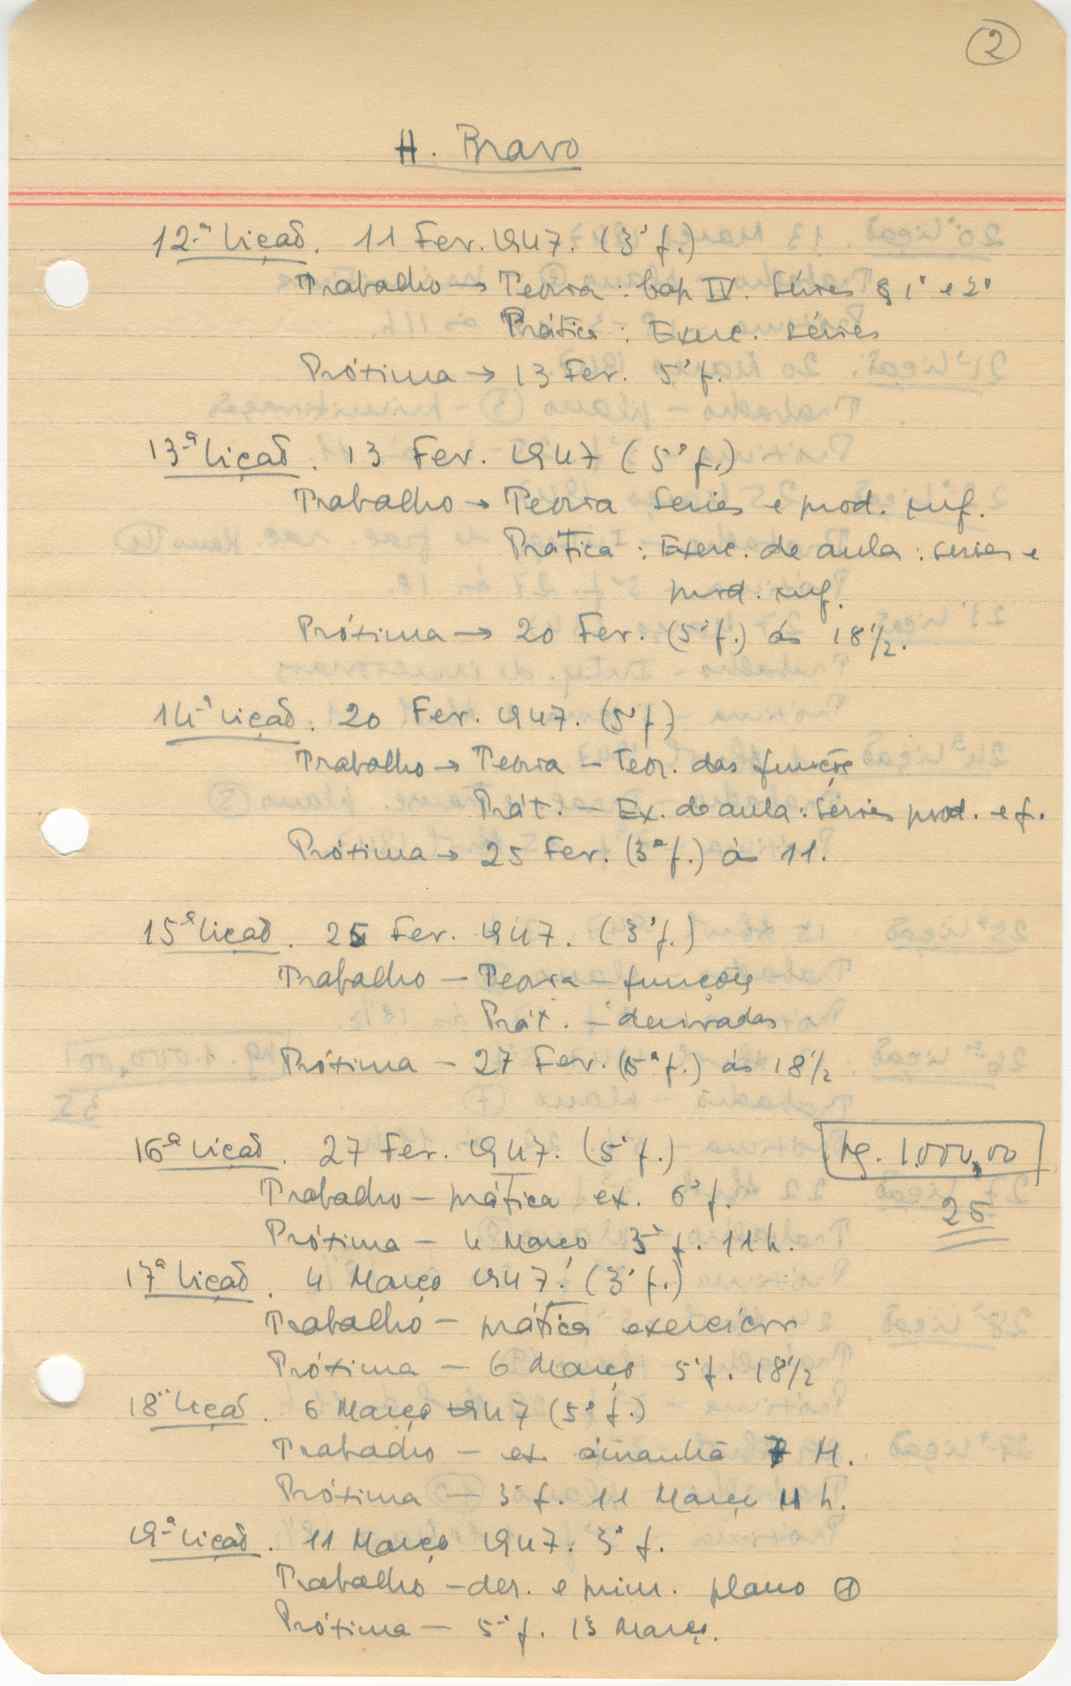 2
H. Bravo
12.ª lição. 11 Fer. 1947. (3ª f.)
Trabalho → Teoria: Cap IV. Séries § 1º e 2º
Prática: Exerc. séries
Próxima → 13 Fev. 5ª f.
13.ª lição. 13 Fev. 1947 (5ª f.)
Trabalho → Teoria Séries e prod. inf.
Prática: Exerc. de aula: séries e
prod. inf.
Próxima → 20 Fev. (5ª f.) às 18½.
14.ª lição. 20 Fev. 1947. (5ª f.)
Trabalho → Teoria – Teor. das funções
Prát. – Ex. de aula: séries prod. e f.
Próxima → 25 Fev. (3ª f.) às 11.
15.ª lição. 25 Fev. 1947. (3ª f.)
Trabalho – Teoria – funções
Prát. – derivadas
Próxima – 27 Fev. (5ª f.) às 18½
16.ª lição. 27 Fev. 1947. (5ª f.) Pg. 1.000,00
Trabalho – prática ex. 6ª f. 25
Próxima – 4 Março 3ª f. 11 h.
17ª lição. 4 Março 1947. (3ª f.)
Trabalho – prática exercícios
Próxima – 6 Março 5ª f. 18½
18ª lição. 6 Março 1947 (5ª f.)
Trabalho – ex. amanhã 7 M.
Próxima – 3ª f. 11 Março 11 h.
19.ª lição. 11 Março 1947. 3ª f.
Trabalho – der. e prim. plano ①
Próxima – 5ª f. 13 Março.